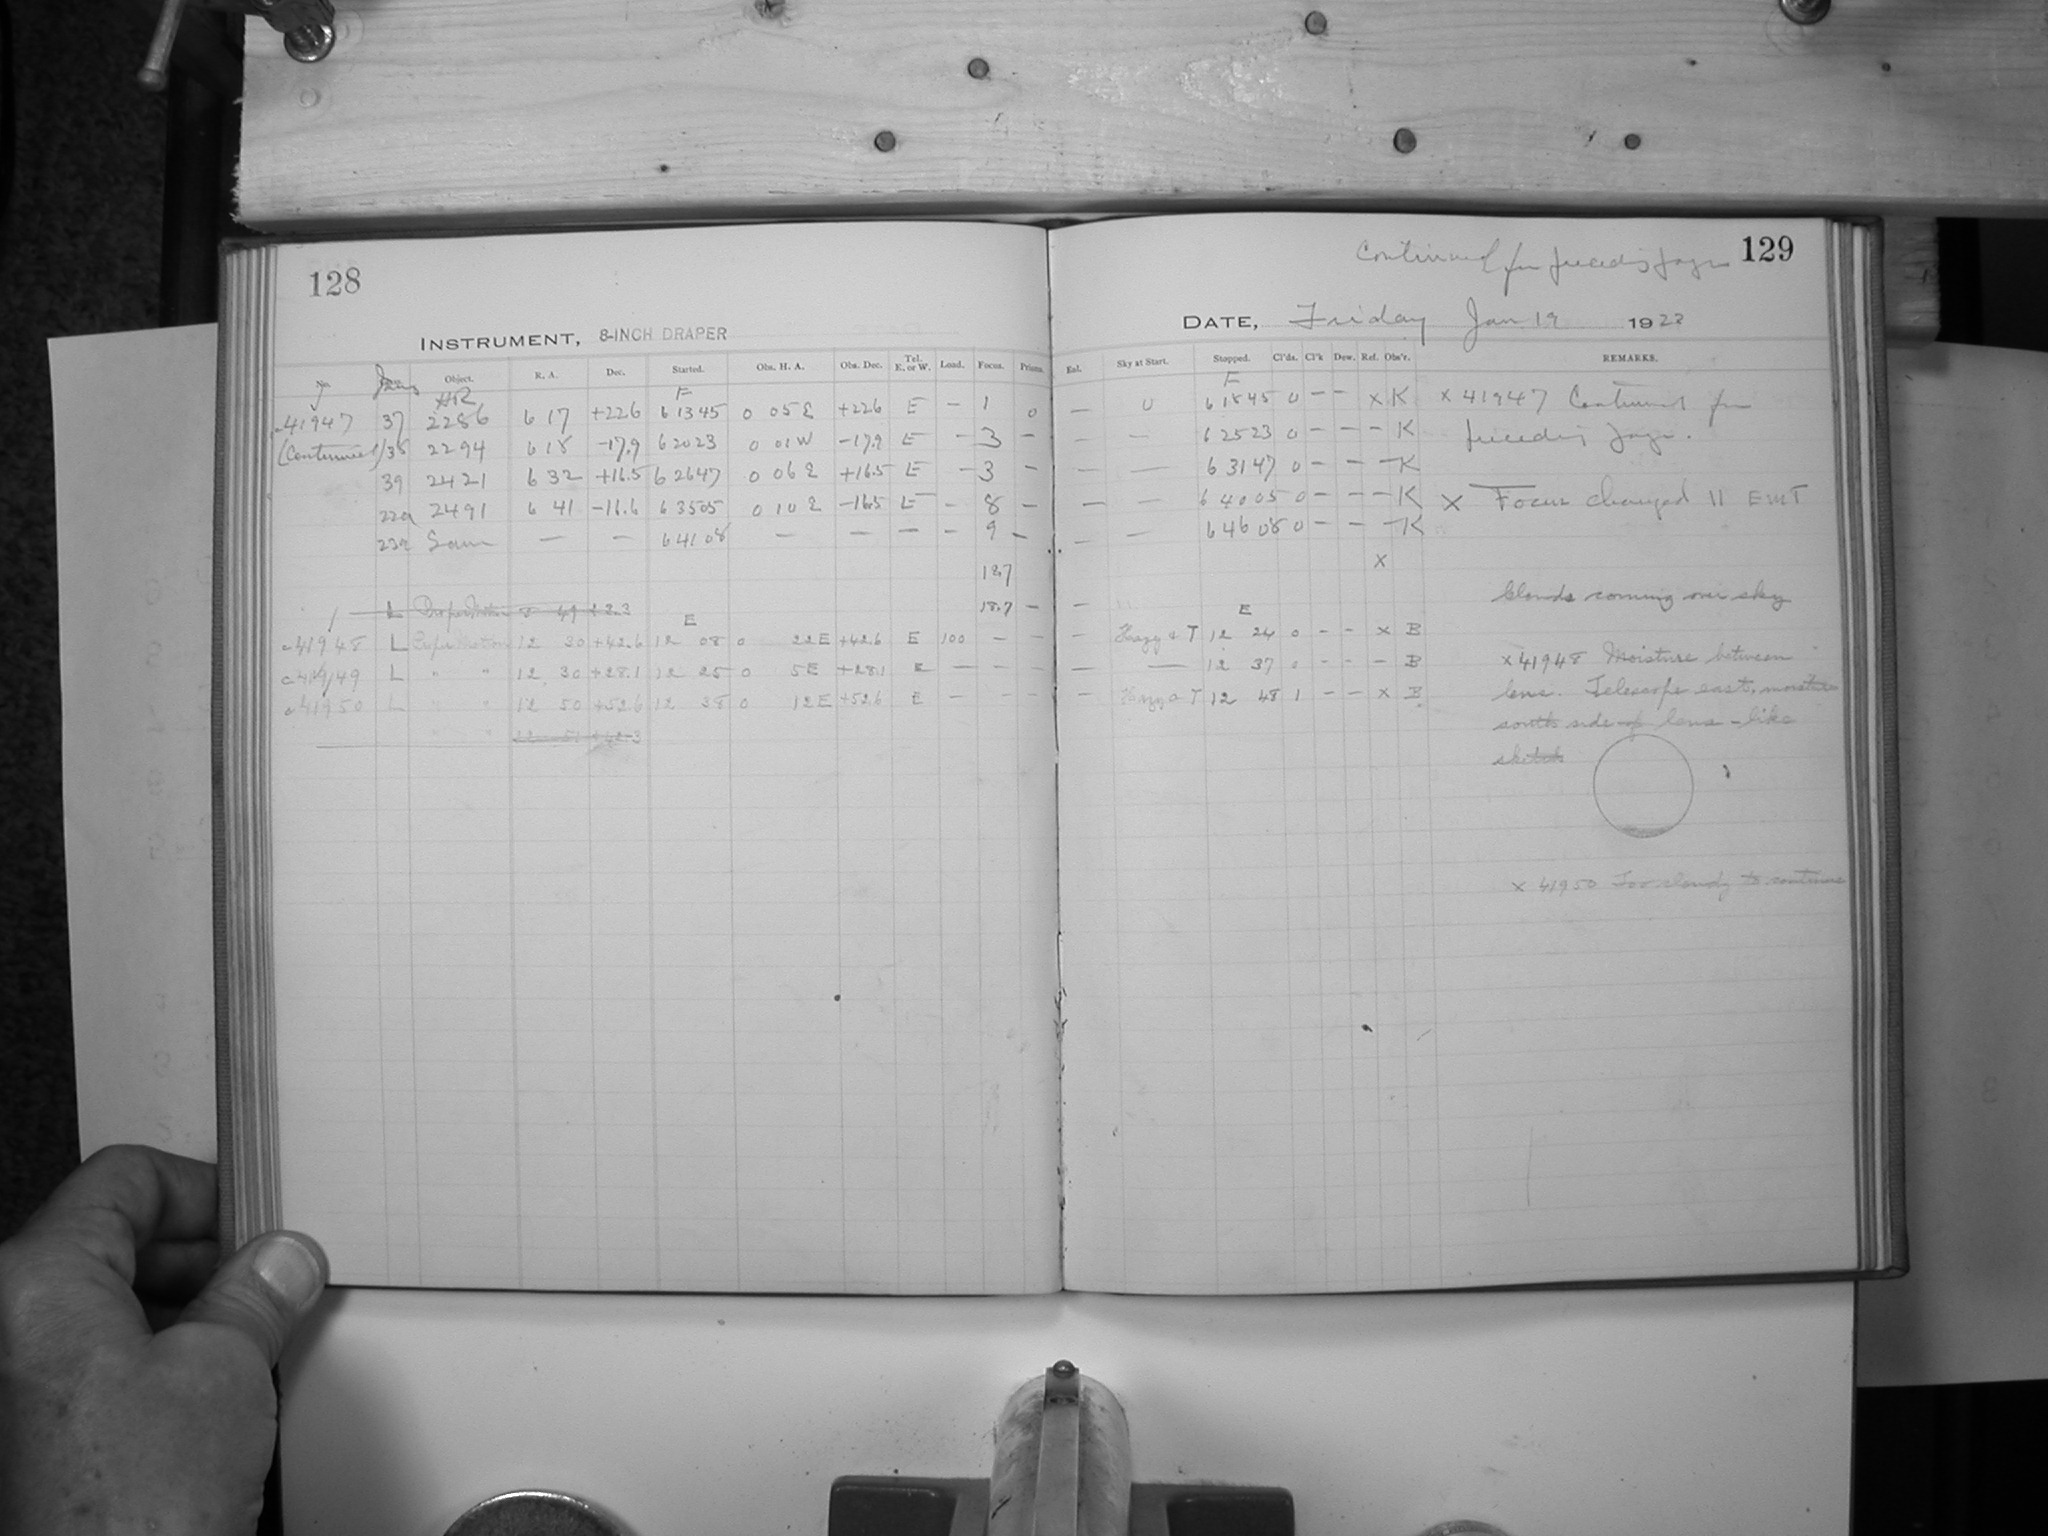 128
INSTRUMENT, 8-INCH DRAPER
No. Object. R. A. Dec. Started. Obs. H. A. Obs. Dec. Tel. E. or W. Load. Focus. Prisms.
HR F
c41947 37 2286 6 17 +22.6 6 13 45 0 05 E +22.6 E – 1 0
(Continued) 38 2294 6 18 -17.9 6 20 23 0 01 W -17.9 E – 3 –
39 2421 6 32 +16.5 6 26 47 0 06 E +16.5 E – 3 –
22a 2491 6 41 -16.6 6 35 05 0 10 E -16.5 E – 8 –
23a Same — – 6 41 08 – – – – 9 –
18.7
L Proper Motion 49 18.7 –
E
c41948 L Proper Motion 12 30 +42.6 12 08 0 22E +42.6 E 100 – –
c41949 L " " 12 30 +28.1 12 25 0 5E +28.1 E – – –
c41950 L " " 12 50 +52.6 12 38 0 12E +52.6 E – – –
" "
Continued fm preceding page 129
DATE, Friday Jan 19 1923
Exl. Sky at Start. Stopped. Cl'ds. Cl'k Dew. Ref. Obs'r. REMARKS.
F
– U 6 18 45 0 – – x K x 41947 Continued fm
– – 6 25 23 0 – – – K preceding page.
— 6 31 47 0 – – – K
– — 6 40 05 0 – – – K X Focus changed 11 EMT
– – 6 46 08 0 – – – K
x
– Clouds coming over sky
E
– Hazy & T 12 24 0 – – x B
– — 12 37 0 – – – B x 41948 Moisture between
– Hazy & T 12 48 1 – – x B lens. Telescope east, moisture
south side of lens – like
sketch
x 41950 Too cloudy to continue